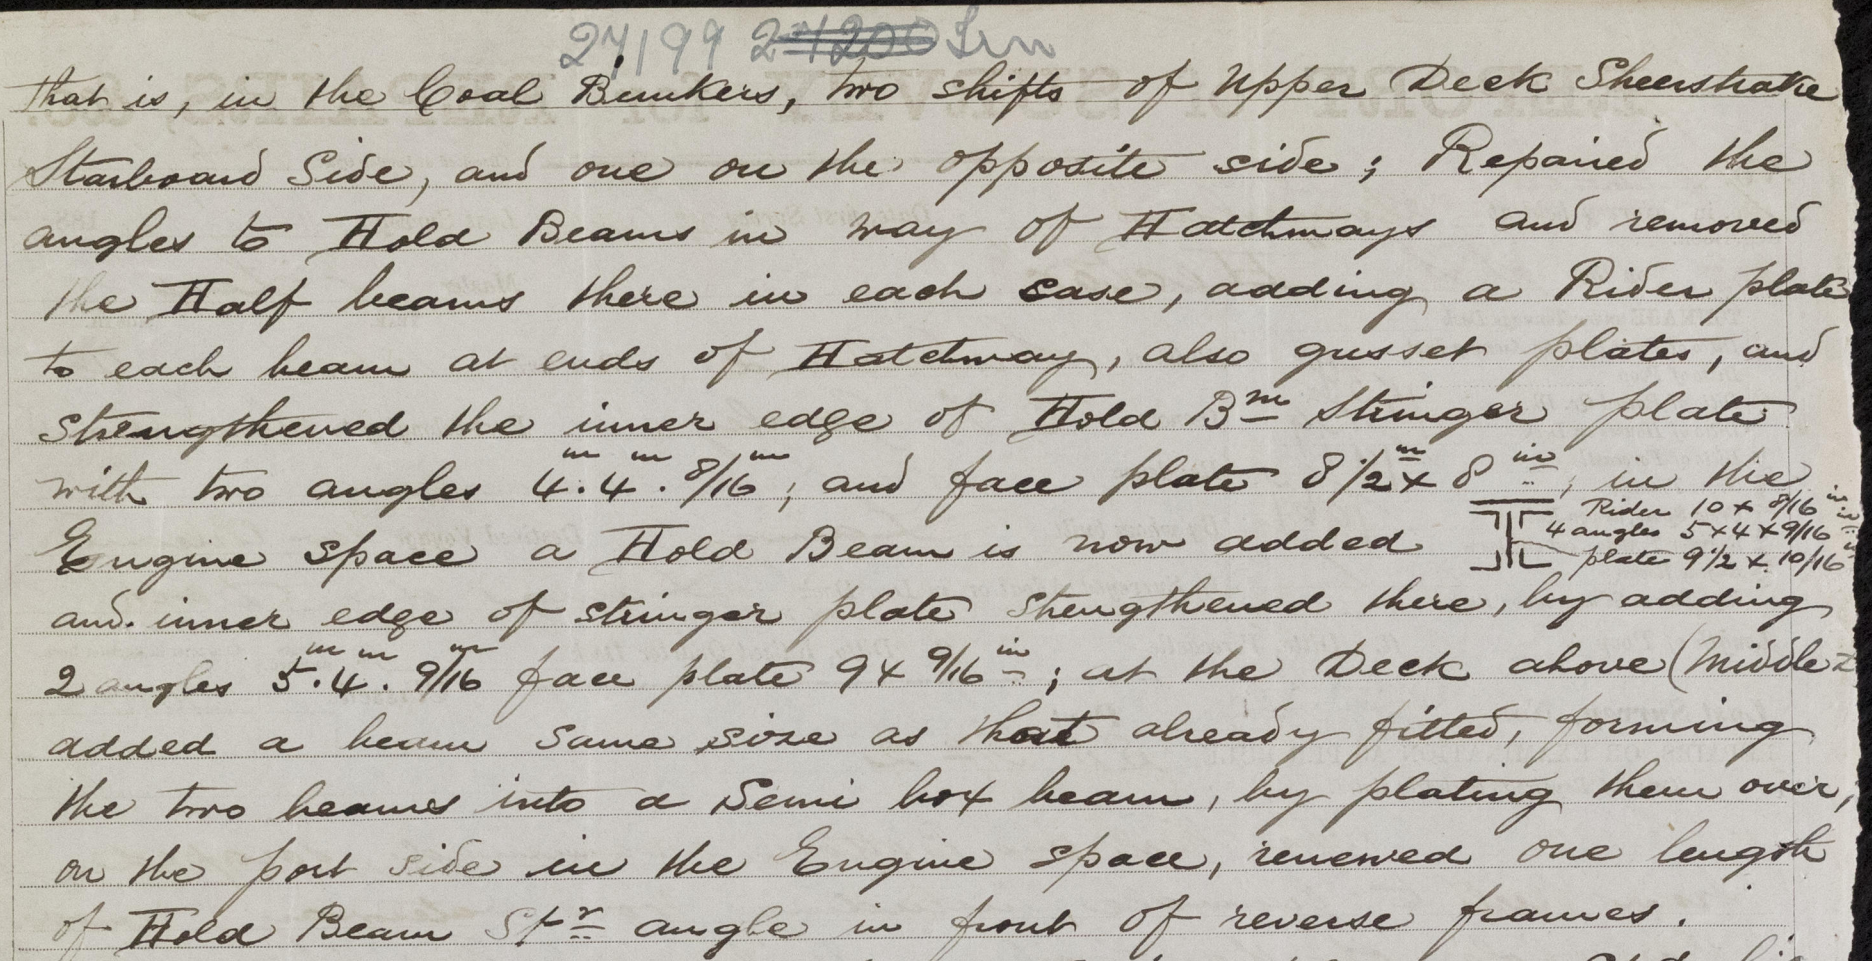 27199 27200 Lrn
that is, in the Coal Bunkers, two shifts of Upper Deck Sheerstrake
Starboard Side, and one on the opposite side; Repaired the
angles to Hold Beams in way of Hatchways and removed
the Half beams there in each case, adding a Rider plate
to each beam at ends of Hatchway, also gusset plates, and
strengthened the inner edge of Hold Bm Stringer plate
with two angles 4in. 4in. 8/16in; and face plate 8 1/2in x 8 in; in the
Engine space a Hold Beam is now added
Rider 10 x 8/16 in
4 angles 5 x 4 x 9/16 in
plate 9 1/2 x 10/16 in
and inner edge of stringer plate strengthened there, by adding
2 angles 5in. 4in. 9/16in face plate 9 x 9/16 in; at the Deck above (Middle
added a beam same size as that already fitted, forming
the two beams into a Semi box beam, by plating them over,
on the port side in the Engine space, renewed one length
of Hold Beam Str angle in front of reverse frames.